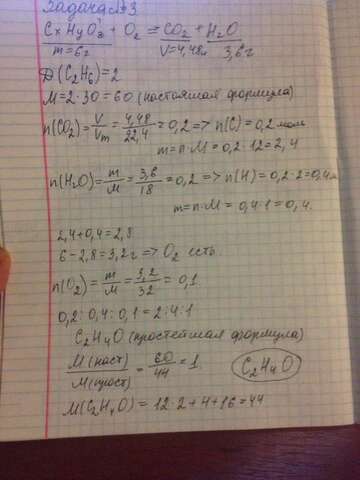 Задача №3
CxHyOz + O2 = CO2 + H2O
m=6г V=4,48л 3,6г
D(C2H6)=2
M=2·30=60 (настоящая формула)
n(CO2)=V/Vm=4,48/22,4=0,2=>n(C)=0,2моль
m=n·M=0,2·12=2,4
n(H2O)=m/M=3,6/18=0,2=>n(H)=0,2·2=0,4м
m=n·M=0,4·1=0,4.
2,4+0,4=2,8
6-2,8=3,2г=>O2 есть.
n(O2)=m/M=3,2/32=0,1
0,2:0,4:0,1=2:4:1
C2H4O (простейшая формула)
M(наст)/M(прост)=60/44=1. C2H4O
M(C2H4O)=12·2+4+16=44